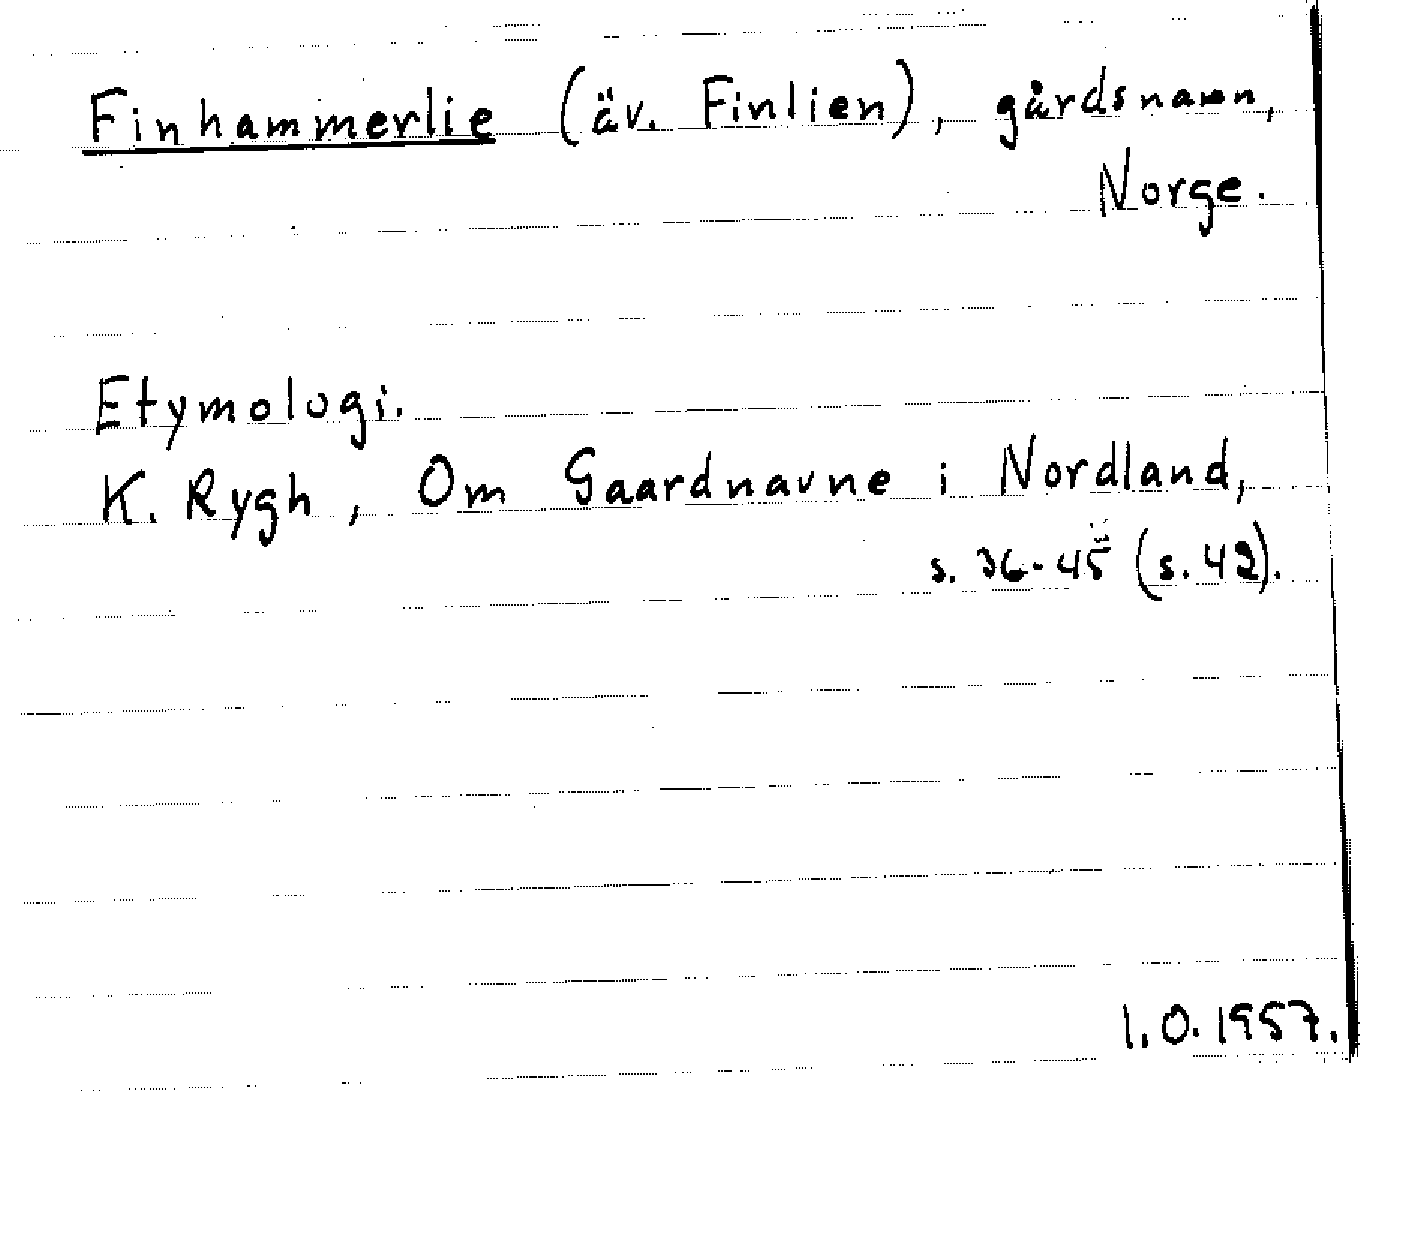 Finhammerlie (äv. Finlien), gårdsnamn,
Norge.
Etymologi.
K. Rygh, Om Gaardnavne i Nordland,
s. 36-45 (s. 42).
I.O.1957.